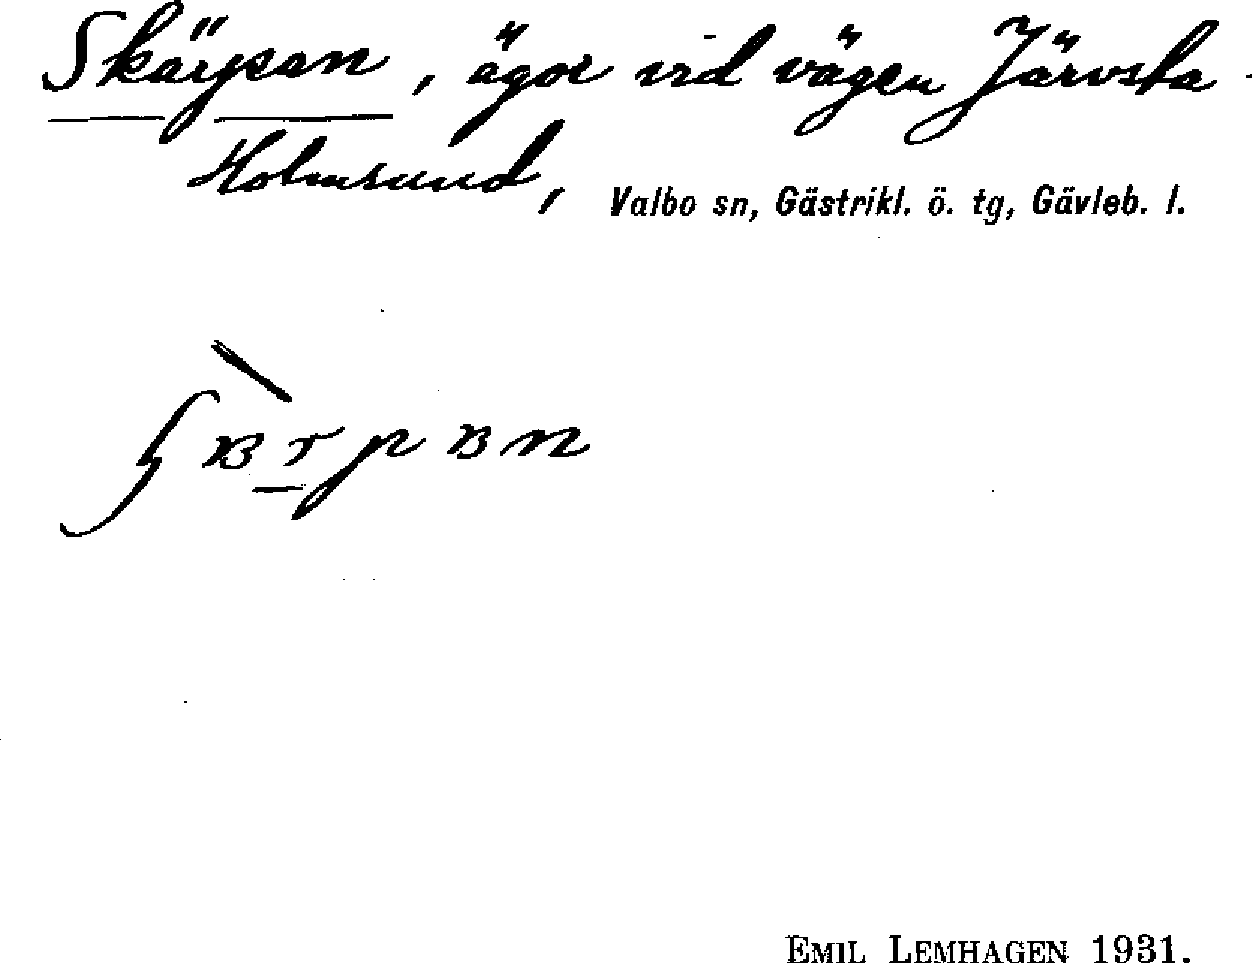 Skärpan, ägor vid vägen Järvsta-
Holmsund, Valbo sn, Gästrikl. ö. tg, Gävleb. l.
EMIL LEMHAGEN 1931.